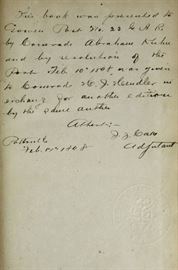 This book was presented to
Gowen Post No. 23 G. A. R.
by Comrade Abraham Kuhn
and by resolution of the
Post Feb 10th 1908 was given
to Comrade H. J. Hendler in
exchange for another edition
by the same author
Attest:-
J. F. Carr
Adjutant
Pottsville
Feb. 1908